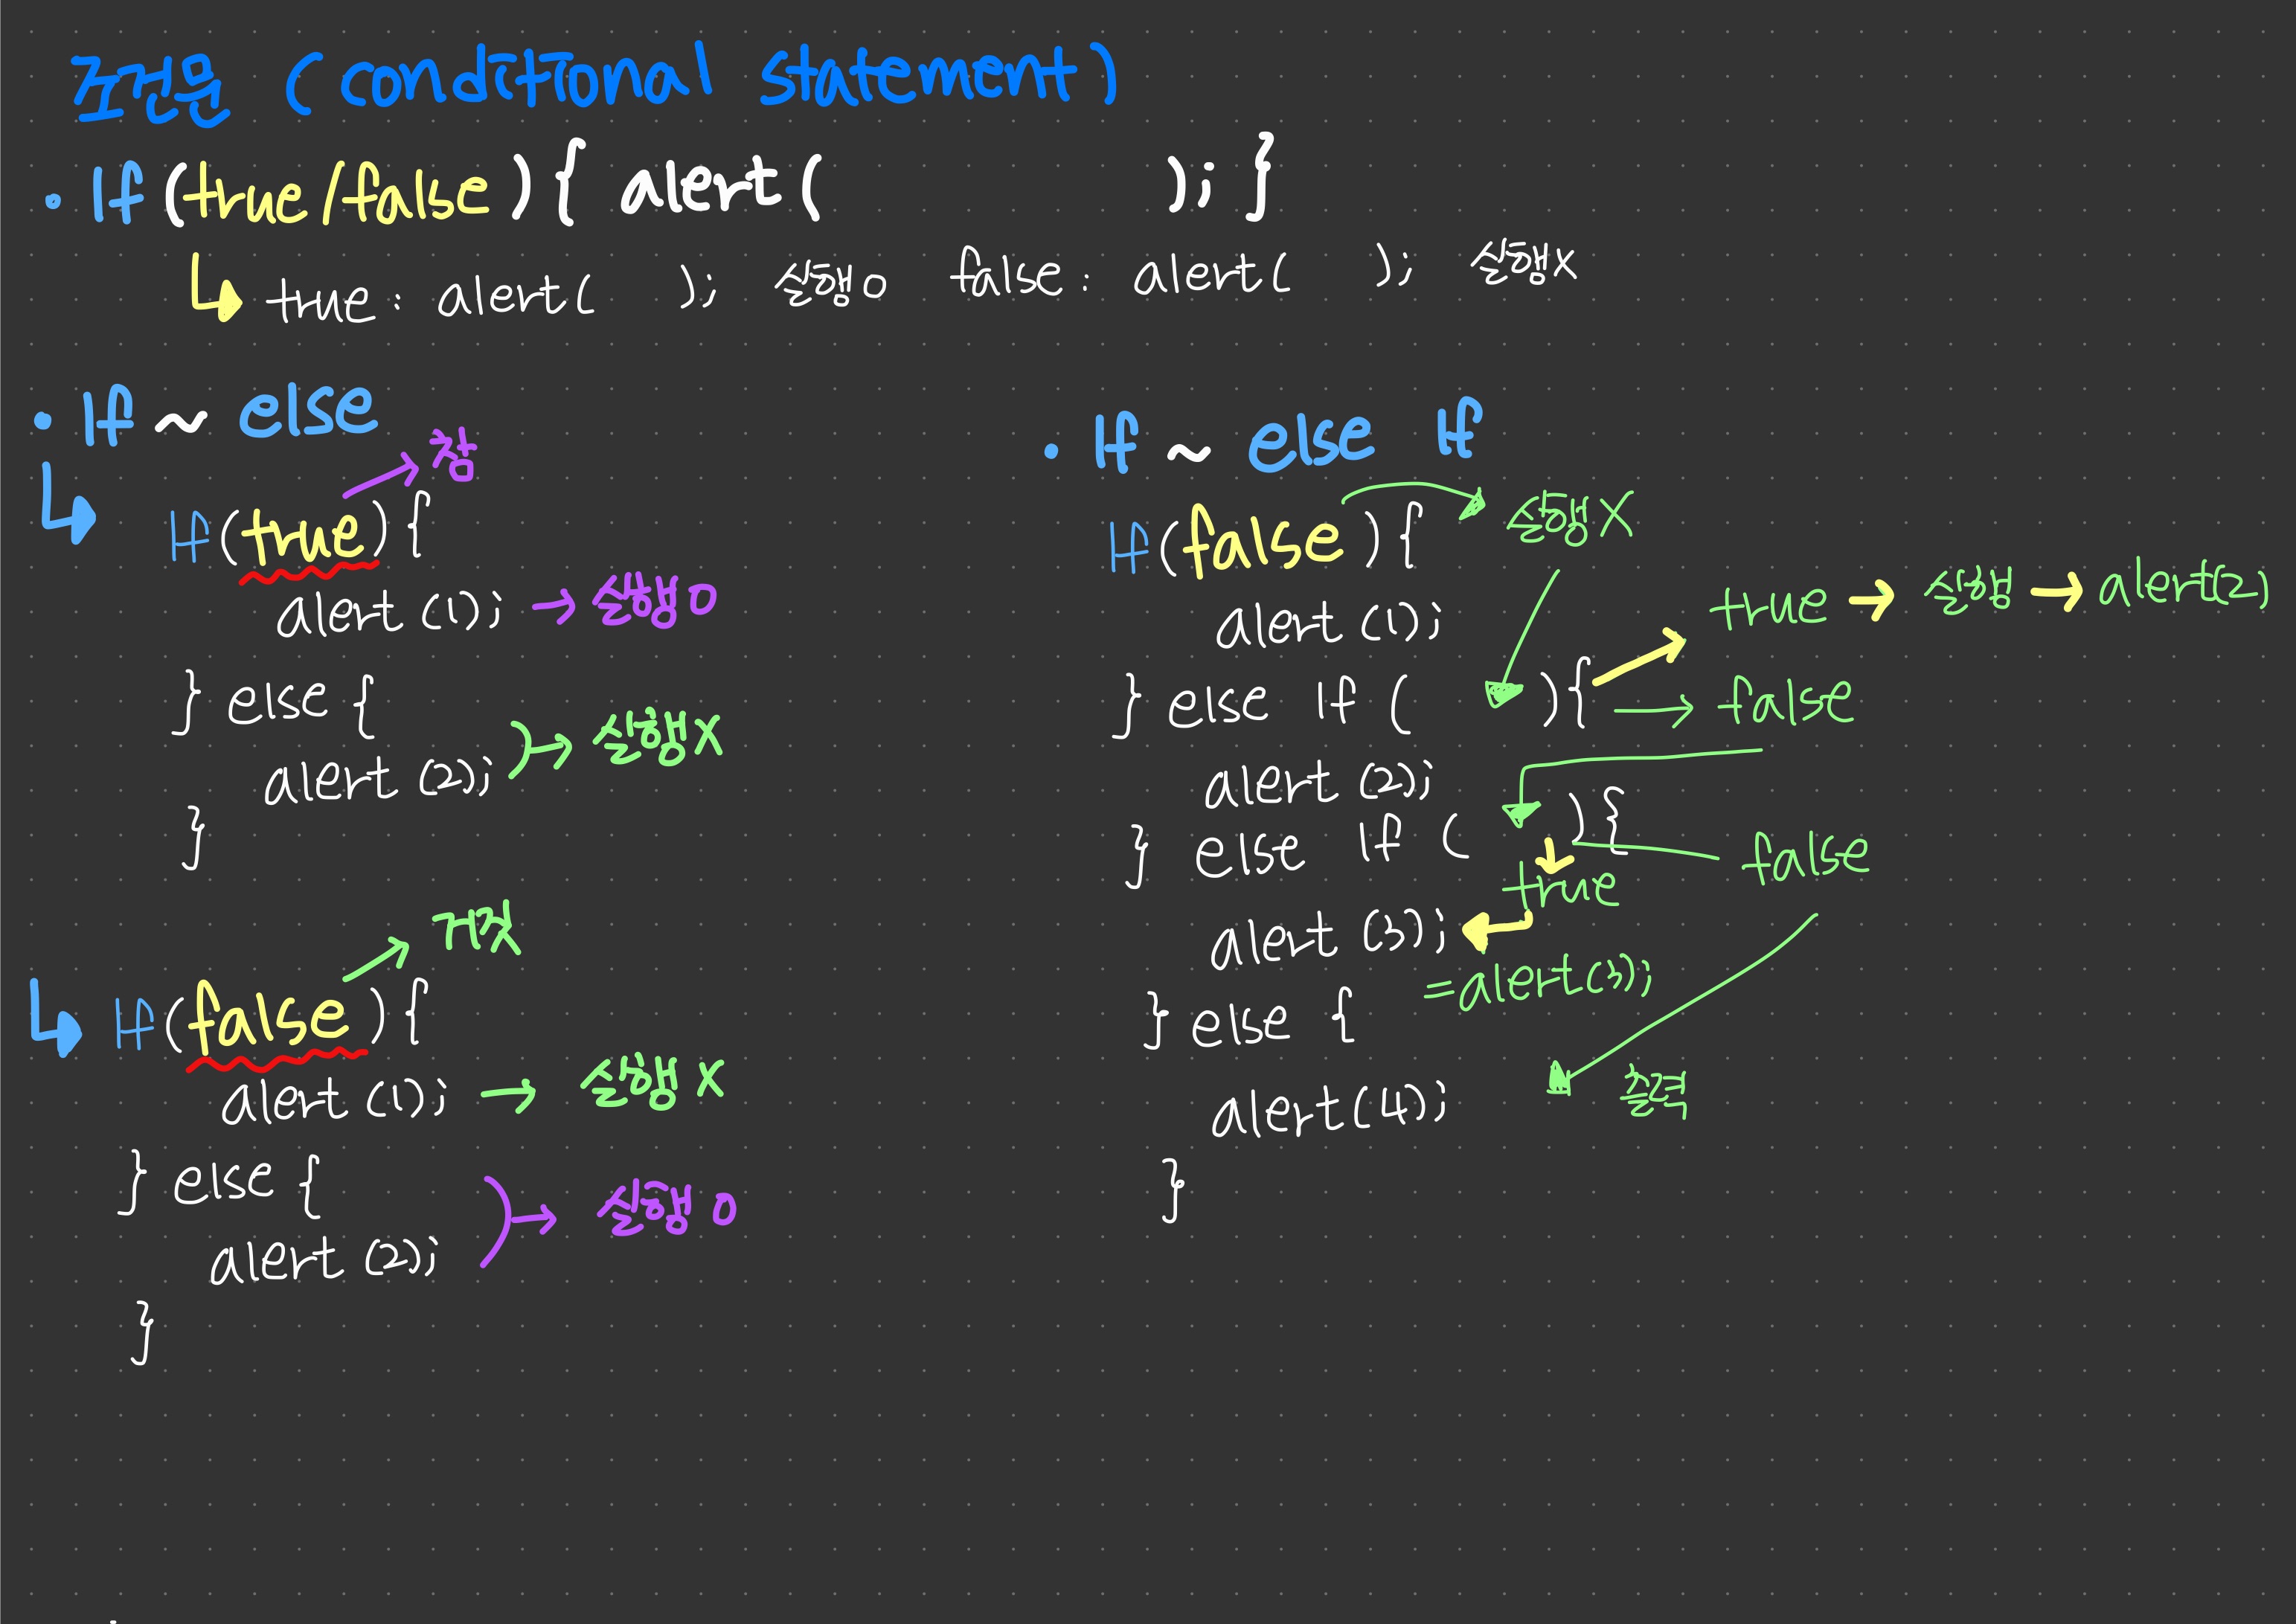 조건문 (conditional statement)
· If (true/false) { alert( ); }
true: alert( ); 실행O false: alert( ); 실행X
· If ~ else
참
If (true) {
alert (1); → 실행O
} else {
alert (2); → 실행X
}
거짓
If (false) {
alert (1); → 실행X
} else {
alert (2); → 실행O
}
· If ~ else If
If (false) { 실행X
alert (1);
true → 실행 → alert(2)
} else If ( ) { → false
alert (2);
} else If ( ) { false
true
alert (3);
=alert(3);
} else {
alert(4); 출력
}